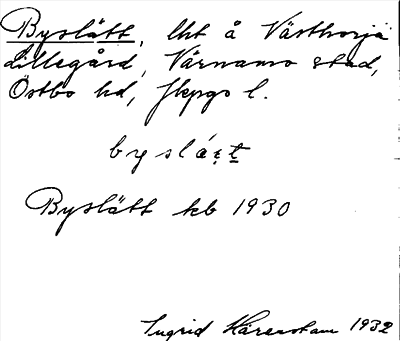 Byslätt, lht å Västhorja
Lillegård, Värnamo stad,
Östbo hd, Jkpgs l.
byslä́t̠t̠
Byslätt kb 1930
Ingrid Härenstam 1932